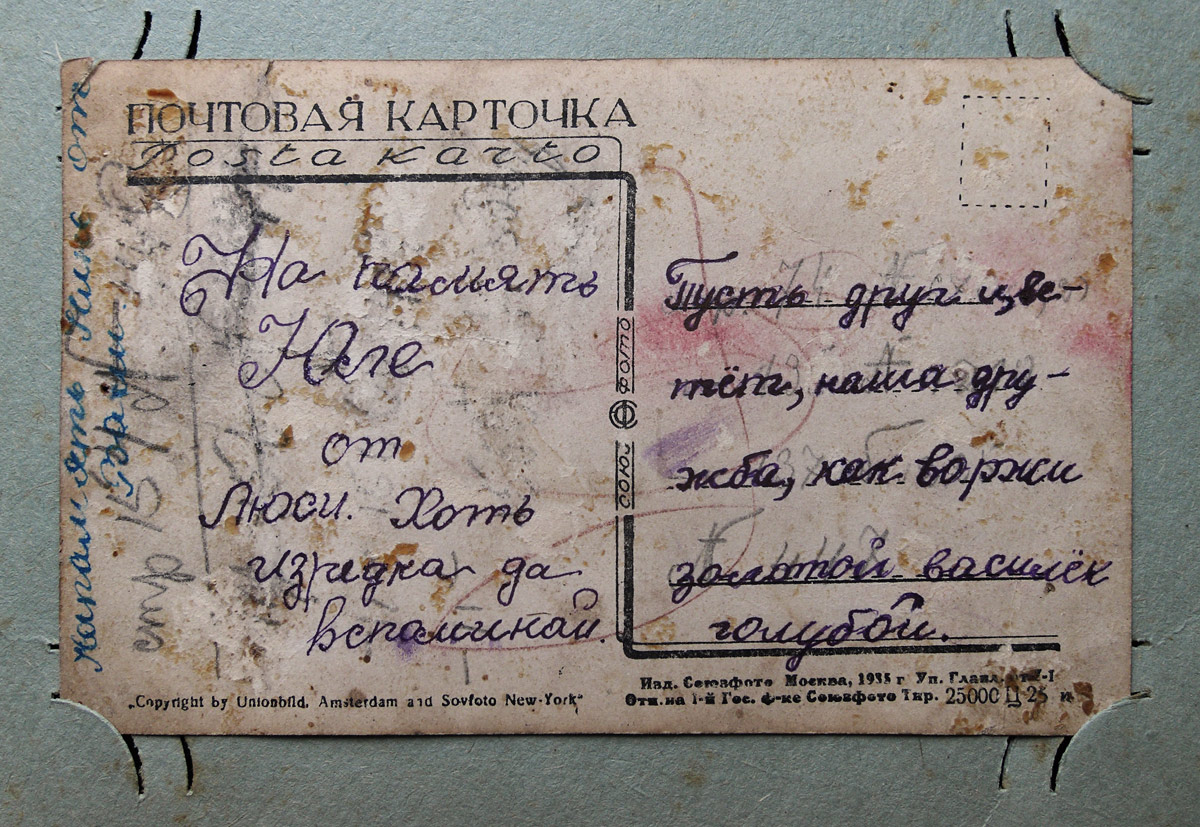 ПОЧТОВАЯ КАРТОЧКА
Posta karto
На память
Юле
от
Люси. Хоть
изредка да
вспоминай.
Пусть друг цве-
тёт, наша дру-
жба, как во ржи
золотой василёк
голубой.
СОЮЗ ФОТО
„Copyright by Unionbild, Amsterdam and Sovfoto New-York“
Изд. Союзфото Москва, 1935 г Уп. Главл.
Отп. на 1-й Гос. ф-ке Союзфото Тир. 25000 Ц-25 к
на память от
стр